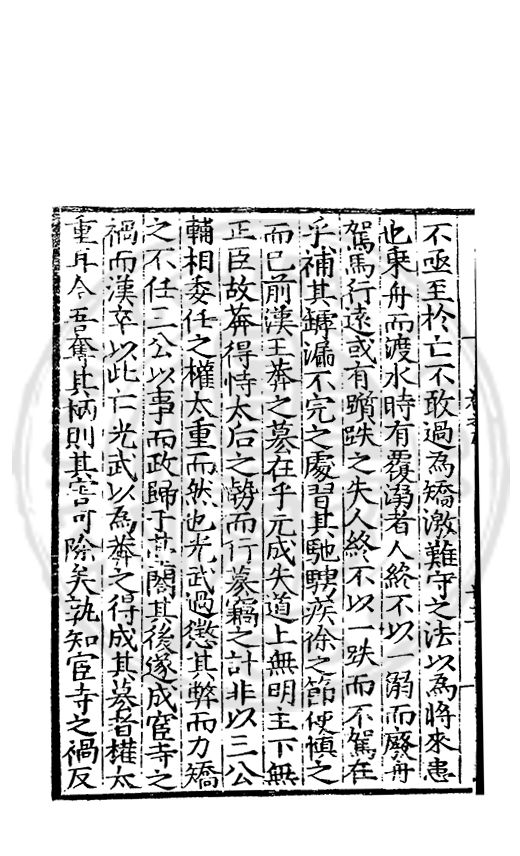 不亟至於亡不敢過為矯激難守之法以為將來患
也乗舟而渡水時有覆溺者人終不以一溺而廢舟
駕馬行遠或有躓跌之失人終不以一跌而不駕在
乎補其罅漏不完之處習其馳騁疾徐之節使慎之
而已前漢王莽之墓在乎元成失道上無明主下無
正臣故莽得恃太后之勢而行篡竊之計非以三公
輔相委任之權太重而然也光武過懲其弊而力矯
之不任三公以事而政歸于臺閣其後遂成宦寺之
禍而漢卒以此亡光武以為莽之得成其篡者權太
重耳今吾奪其柄則其害可除矣孰知宦寺之禍反